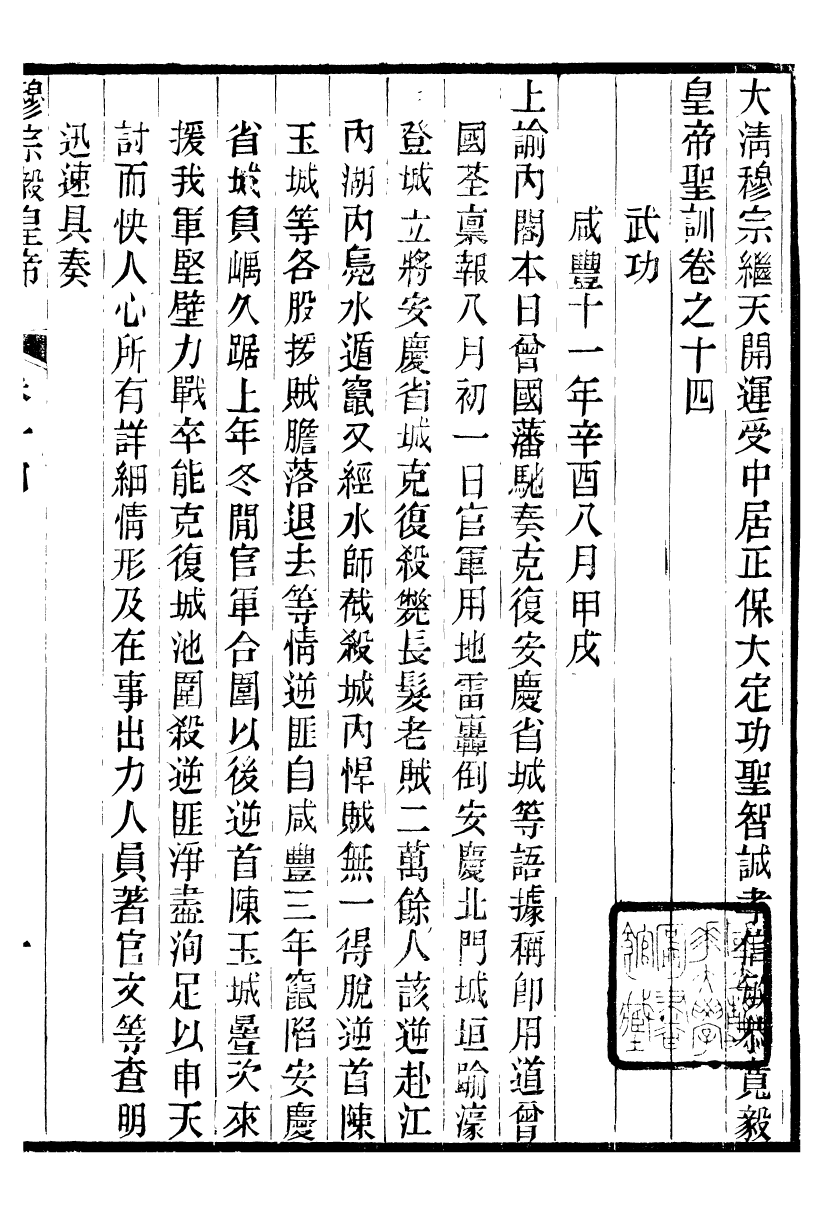 大清穆宗繼天開運受中居正保大定功聖智誠孝信敏恭寬毅
皇帝聖訓卷之十四
武功
咸豐十一年辛酉八月甲戌
上諭內閣本日曾國藩馳奏克復安慶省城等語據稱卽用道曾
國荃稟報八月初一日官軍用地雷轟倒安慶北門城垣踰濠
登城立將安慶省城克復殺斃長髮老賊二萬餘人該逆赴江
內湖內鳧水遁竄又經水師截殺城內悍賊無一得脫逆首陳
玉城等各股援賊膽落退去等情逆匪自咸豐三年竄陷安慶
省城負嵎久踞上年冬閒官軍合圍以後逆首陳玉城疊次來
援我軍堅壁力戰卒能克復城池圍殺逆匪淨盡洵足以申天
討而快人心所有詳細情形及在事出力人員著官文等查明
迅速具奏
穆宗毅皇帝 卷十四 一